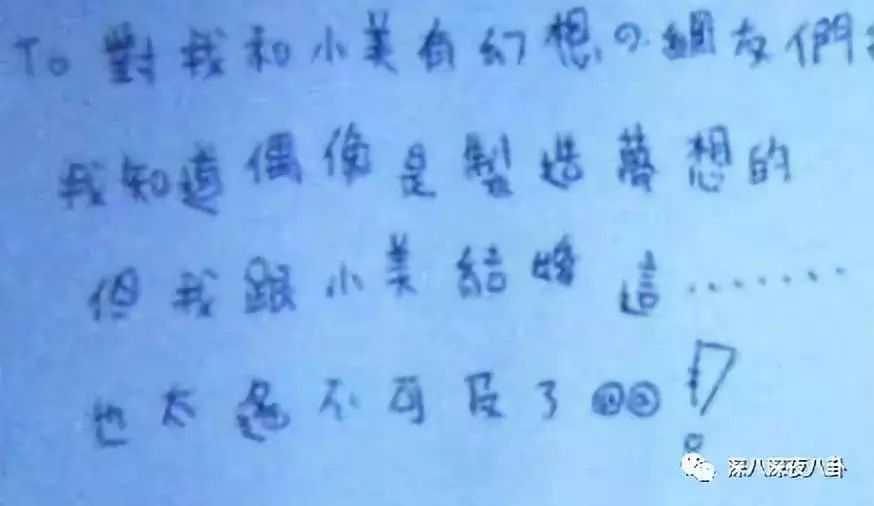 To 對我和小美有幻想の網友們
我知道偶像是製造夢想的
但我跟小美結婚這.......
也太遙不可及了@@!?
深八深夜八卦